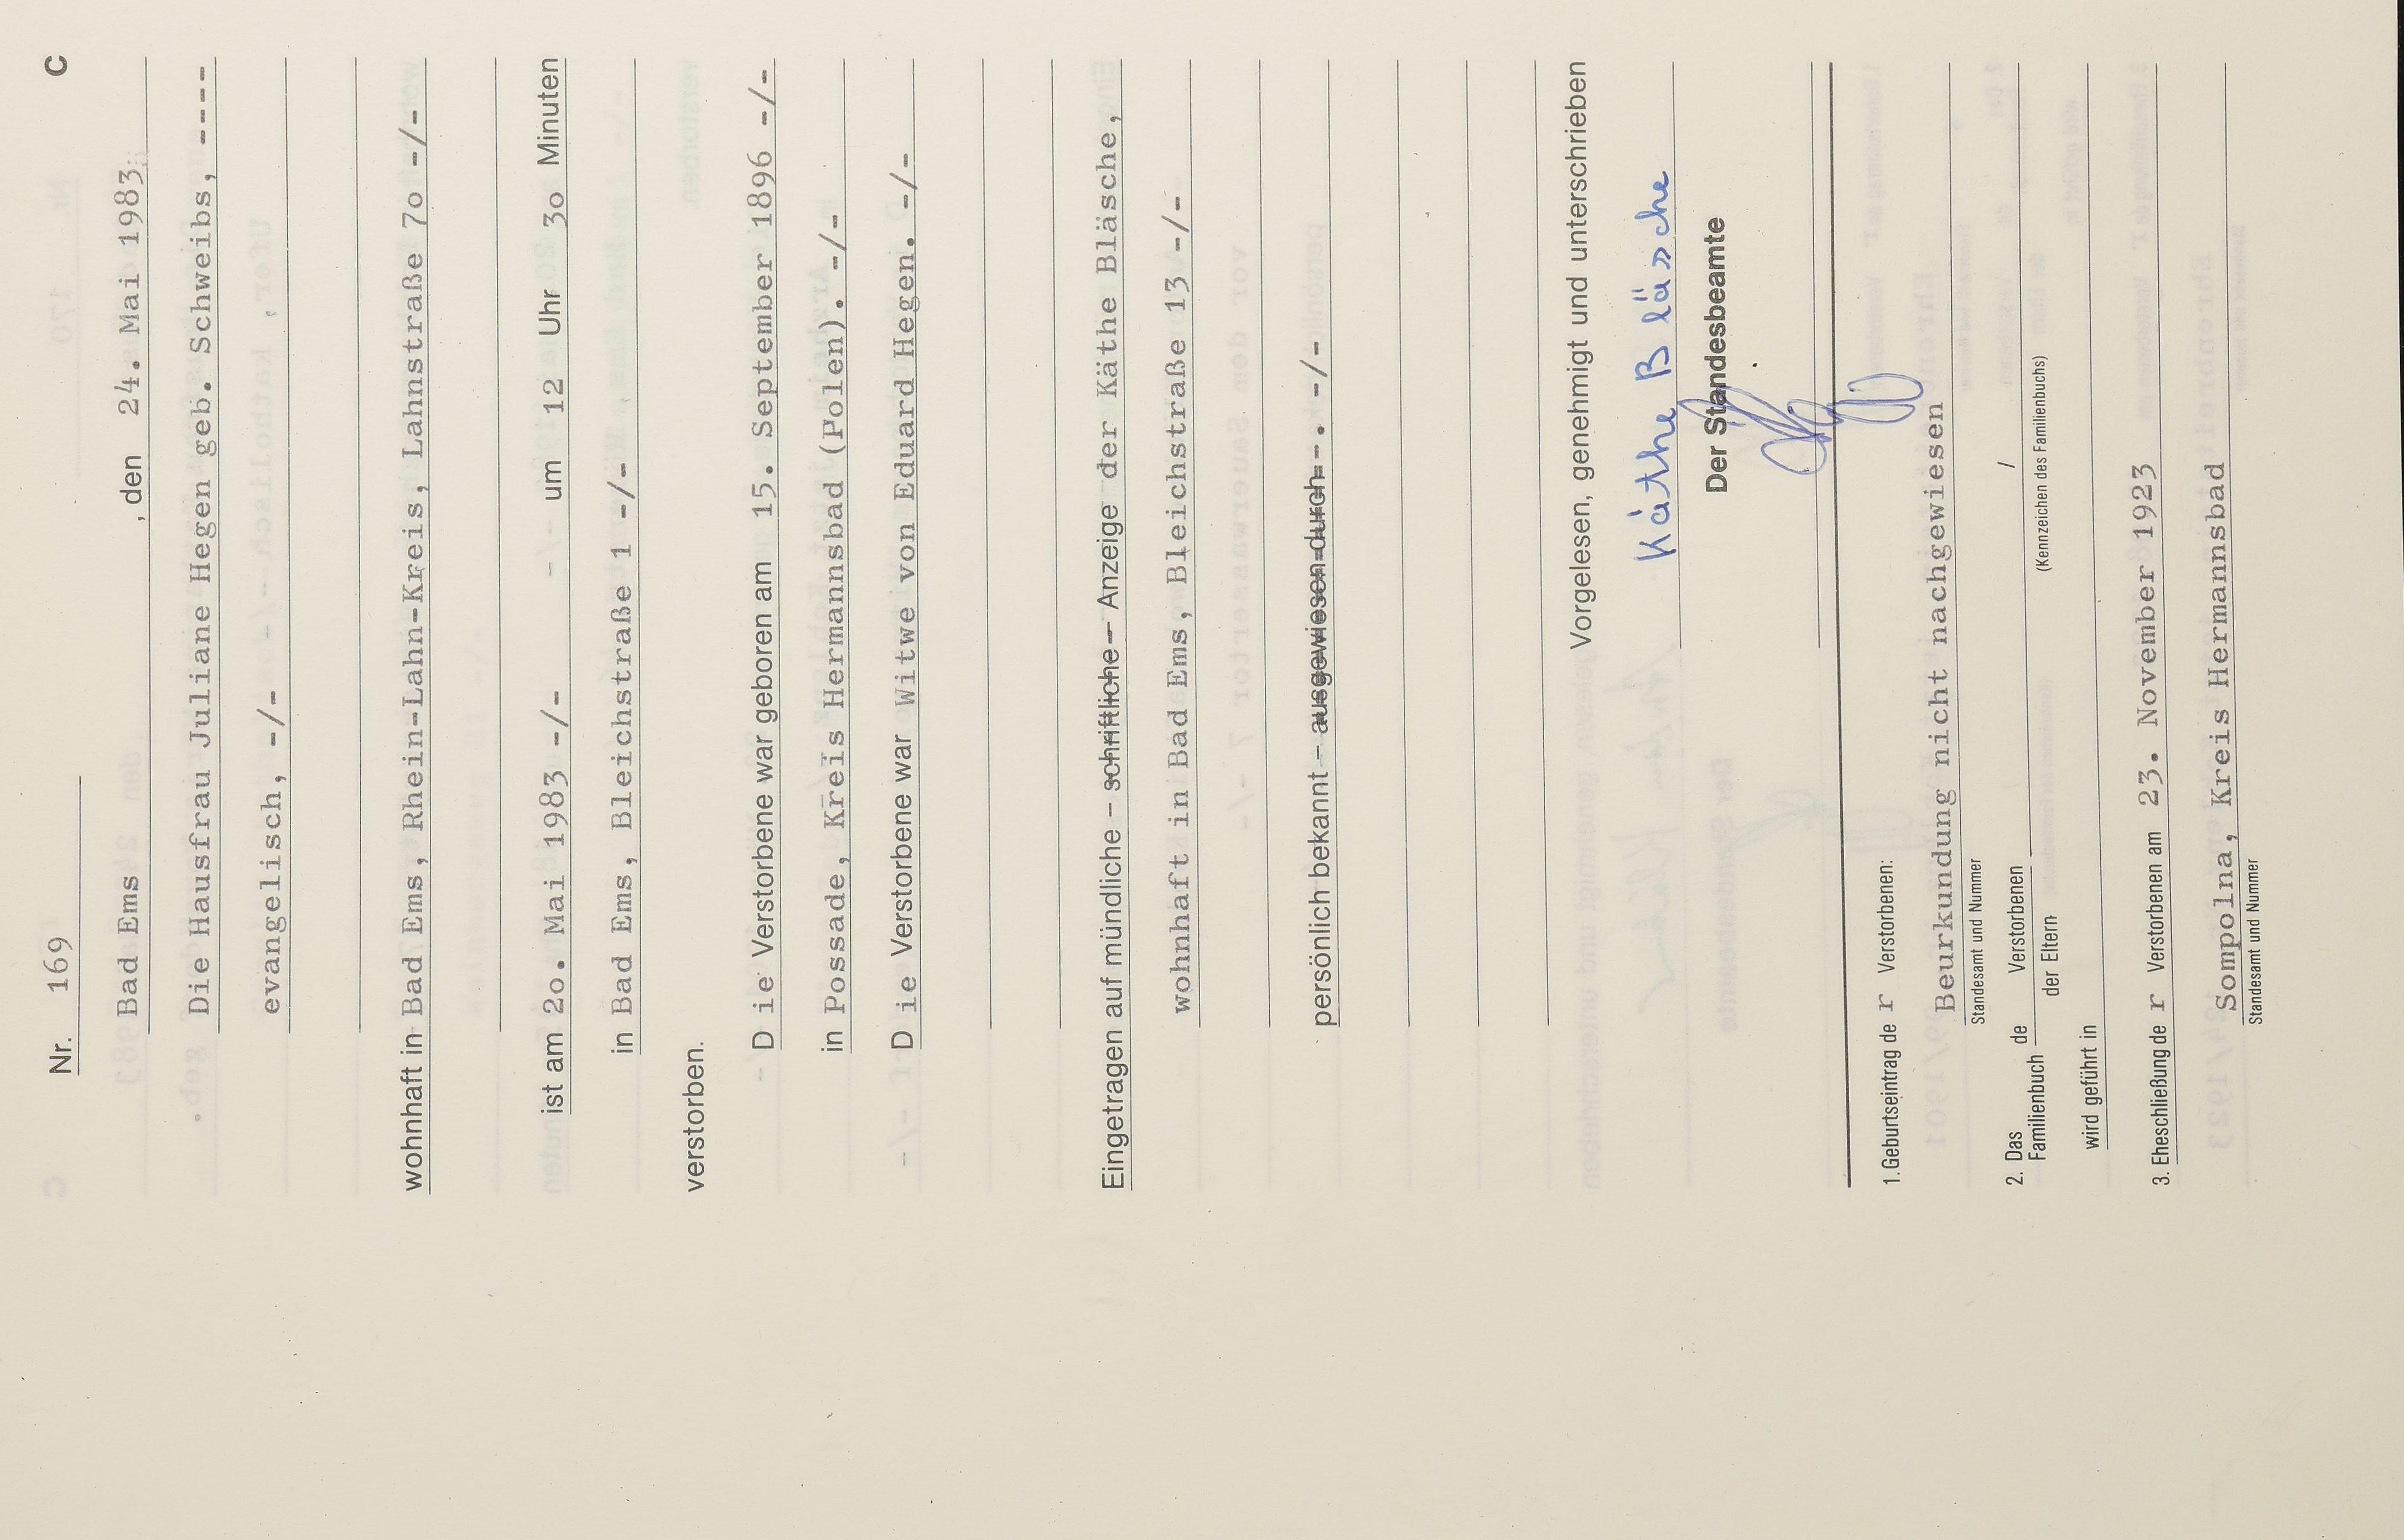 Nr. 169 C
Bad Ems , den 24. Mai 1983
Die Hausfrau Juliane Hegen geb. Schweibs, ----
evangelisch, -/-
wohnhaft in Bad Ems, Rhein-Lahn-Kreis, Lahnstraße 7o -/-
ist am 2o. Mai 1983 -/- um 12 Uhr 3o Minuten
in Bad Ems, Bleichstraße 1 -/-
verstorben.
D ie Verstorbene war geboren am 15. September 1896 -/-
in Possade, Kreis Hermannsbad (Polen). -/-
D ie Verstorbene war Witwe von Eduard Hegen. -/-
Eingetragen auf mündliche – schriftliche – Anzeige der Käthe Bläsche,
wohnhaft in Bad Ems, Bleichstraße 13 -/-
persönlich bekannt – ausgewiesen durch--. -/-
Vorgelesen, genehmigt und unterschrieben
Käthe Bläsche
Der Standesbeamte
1. Geburtseintrag de r Verstorbenen:
Beurkundung nicht nachgewiesen
Standesamt und Nummer
2. Das Familienbuch de Verstorbenen /
der Eltern (Kennzeichen des Familienbuchs)
wird geführt in
3. Eheschließung de r Verstorbenen am 23. November 1923
Sompolna, Kreis Hermannsbad
Standesamt und Nummer